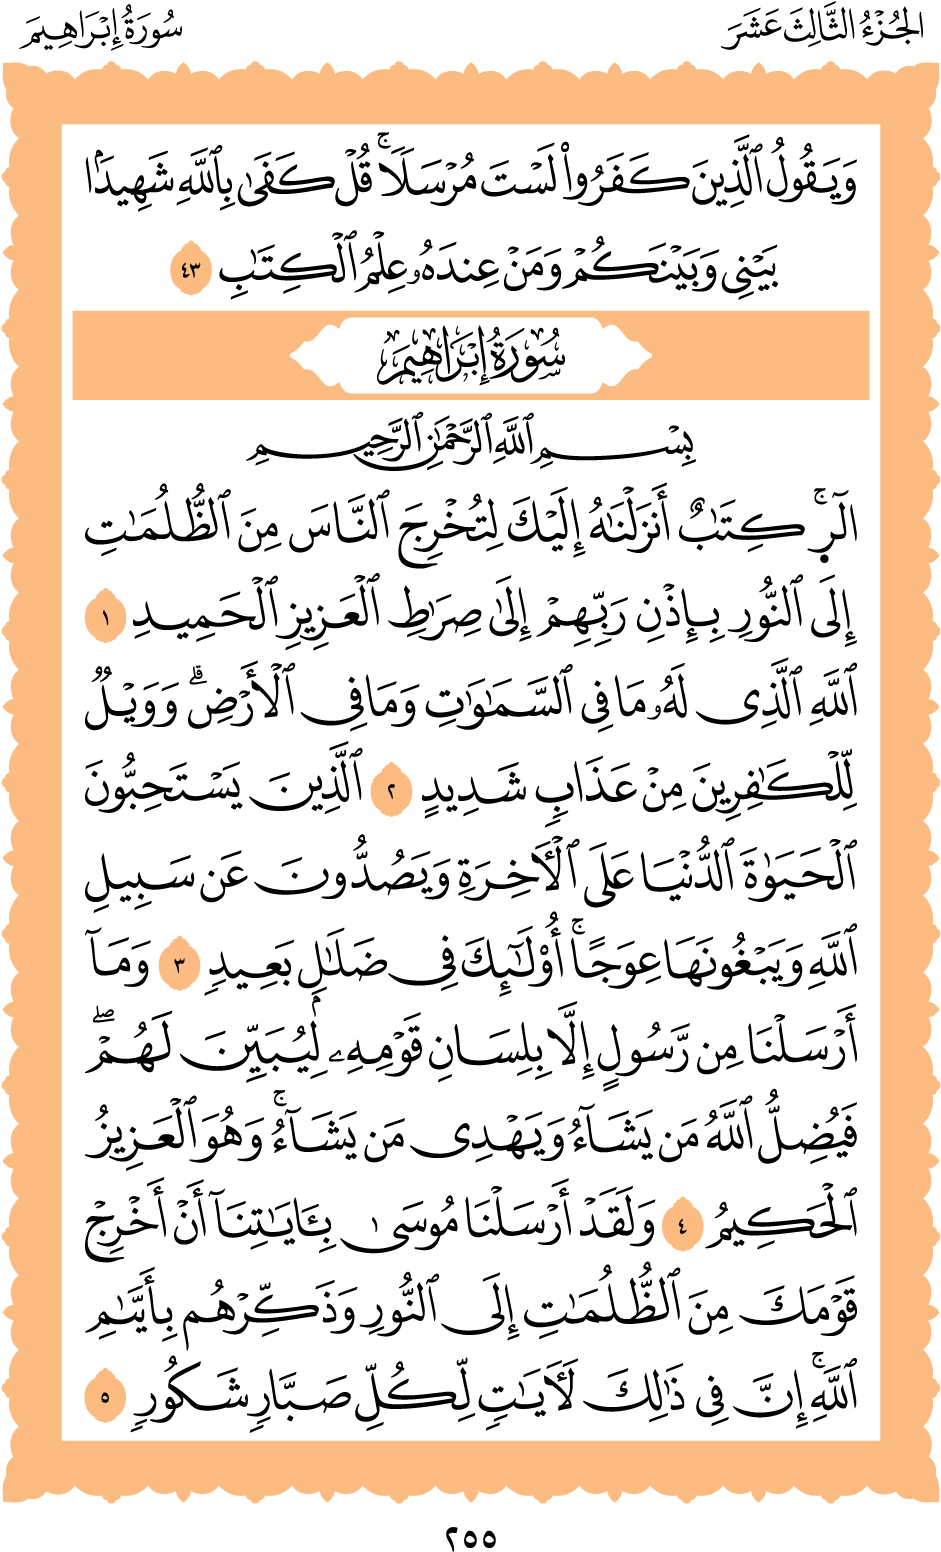 الجُزْءُ الثَّالِثَ عَشَرَ
سُورَةُ إِبْرَاهِيمَ
وَيَقُولُ ٱلَّذِينَ كَفَرُوا۟ لَسْتَ مُرْسَلًاۚ قُلْ كَفَىٰ بِٱللَّهِ شَهِيدًۢا
بَيْنِى وَبَيْنَكُمْ وَمَنْ عِندَهُۥ عِلْمُ ٱلْكِتَٰبِ ٤٣
سُورَةُ إِبْرَاهِيمَ
بِسْمِ ٱللَّهِ ٱلرَّحْمَٰنِ ٱلرَّحِيمِ
الٓرۚ كِتَٰبٌ أَنزَلْنَٰهُ إِلَيْكَ لِتُخْرِجَ ٱلنَّاسَ مِنَ ٱلظُّلُمَٰتِ
إِلَى ٱلنُّورِ بِإِذْنِ رَبِّهِمْ إِلَىٰ صِرَٰطِ ٱلْعَزِيزِ ٱلْحَمِيدِ ١
ٱللَّهِ ٱلَّذِى لَهُۥ مَا فِى ٱلسَّمَٰوَٰتِ وَمَا فِى ٱلْأَرْضِۗ وَوَيْلٌ
لِّلْكَٰفِرِينَ مِنْ عَذَابٍ شَدِيدٍ ٢ ٱلَّذِينَ يَسْتَحِبُّونَ
ٱلْحَيَوٰةَ ٱلدُّنْيَا عَلَى ٱلْءَاخِرَةِ وَيَصُدُّونَ عَن سَبِيلِ
ٱللَّهِ وَيَبْغُونَهَا عِوَجًاۚ أُو۟لَٰٓئِكَ فِى ضَلَٰلٍۭ بَعِيدٍ ٣ وَمَآ
أَرْسَلْنَا مِن رَّسُولٍ إِلَّا بِلِسَانِ قَوْمِهِۦ لِيُبَيِّنَ لَهُمْۖ
فَيُضِلُّ ٱللَّهُ مَن يَشَآءُ وَيَهْدِى مَن يَشَآءُۚ وَهُوَ ٱلْعَزِيزُ
ٱلْحَكِيمُ ٤ وَلَقَدْ أَرْسَلْنَا مُوسَىٰ بِـَٔايَٰتِنَآ أَنْ أَخْرِجْ
قَوْمَكَ مِنَ ٱلظُّلُمَٰتِ إِلَى ٱلنُّورِ وَذَكِّرْهُم بِأَيَّىٰمِ
ٱللَّهِۚ إِنَّ فِى ذَٰلِكَ لَءَايَٰتٍ لِّكُلِّ صَبَّارٍ شَكُورٍ ٥
٢٥٥